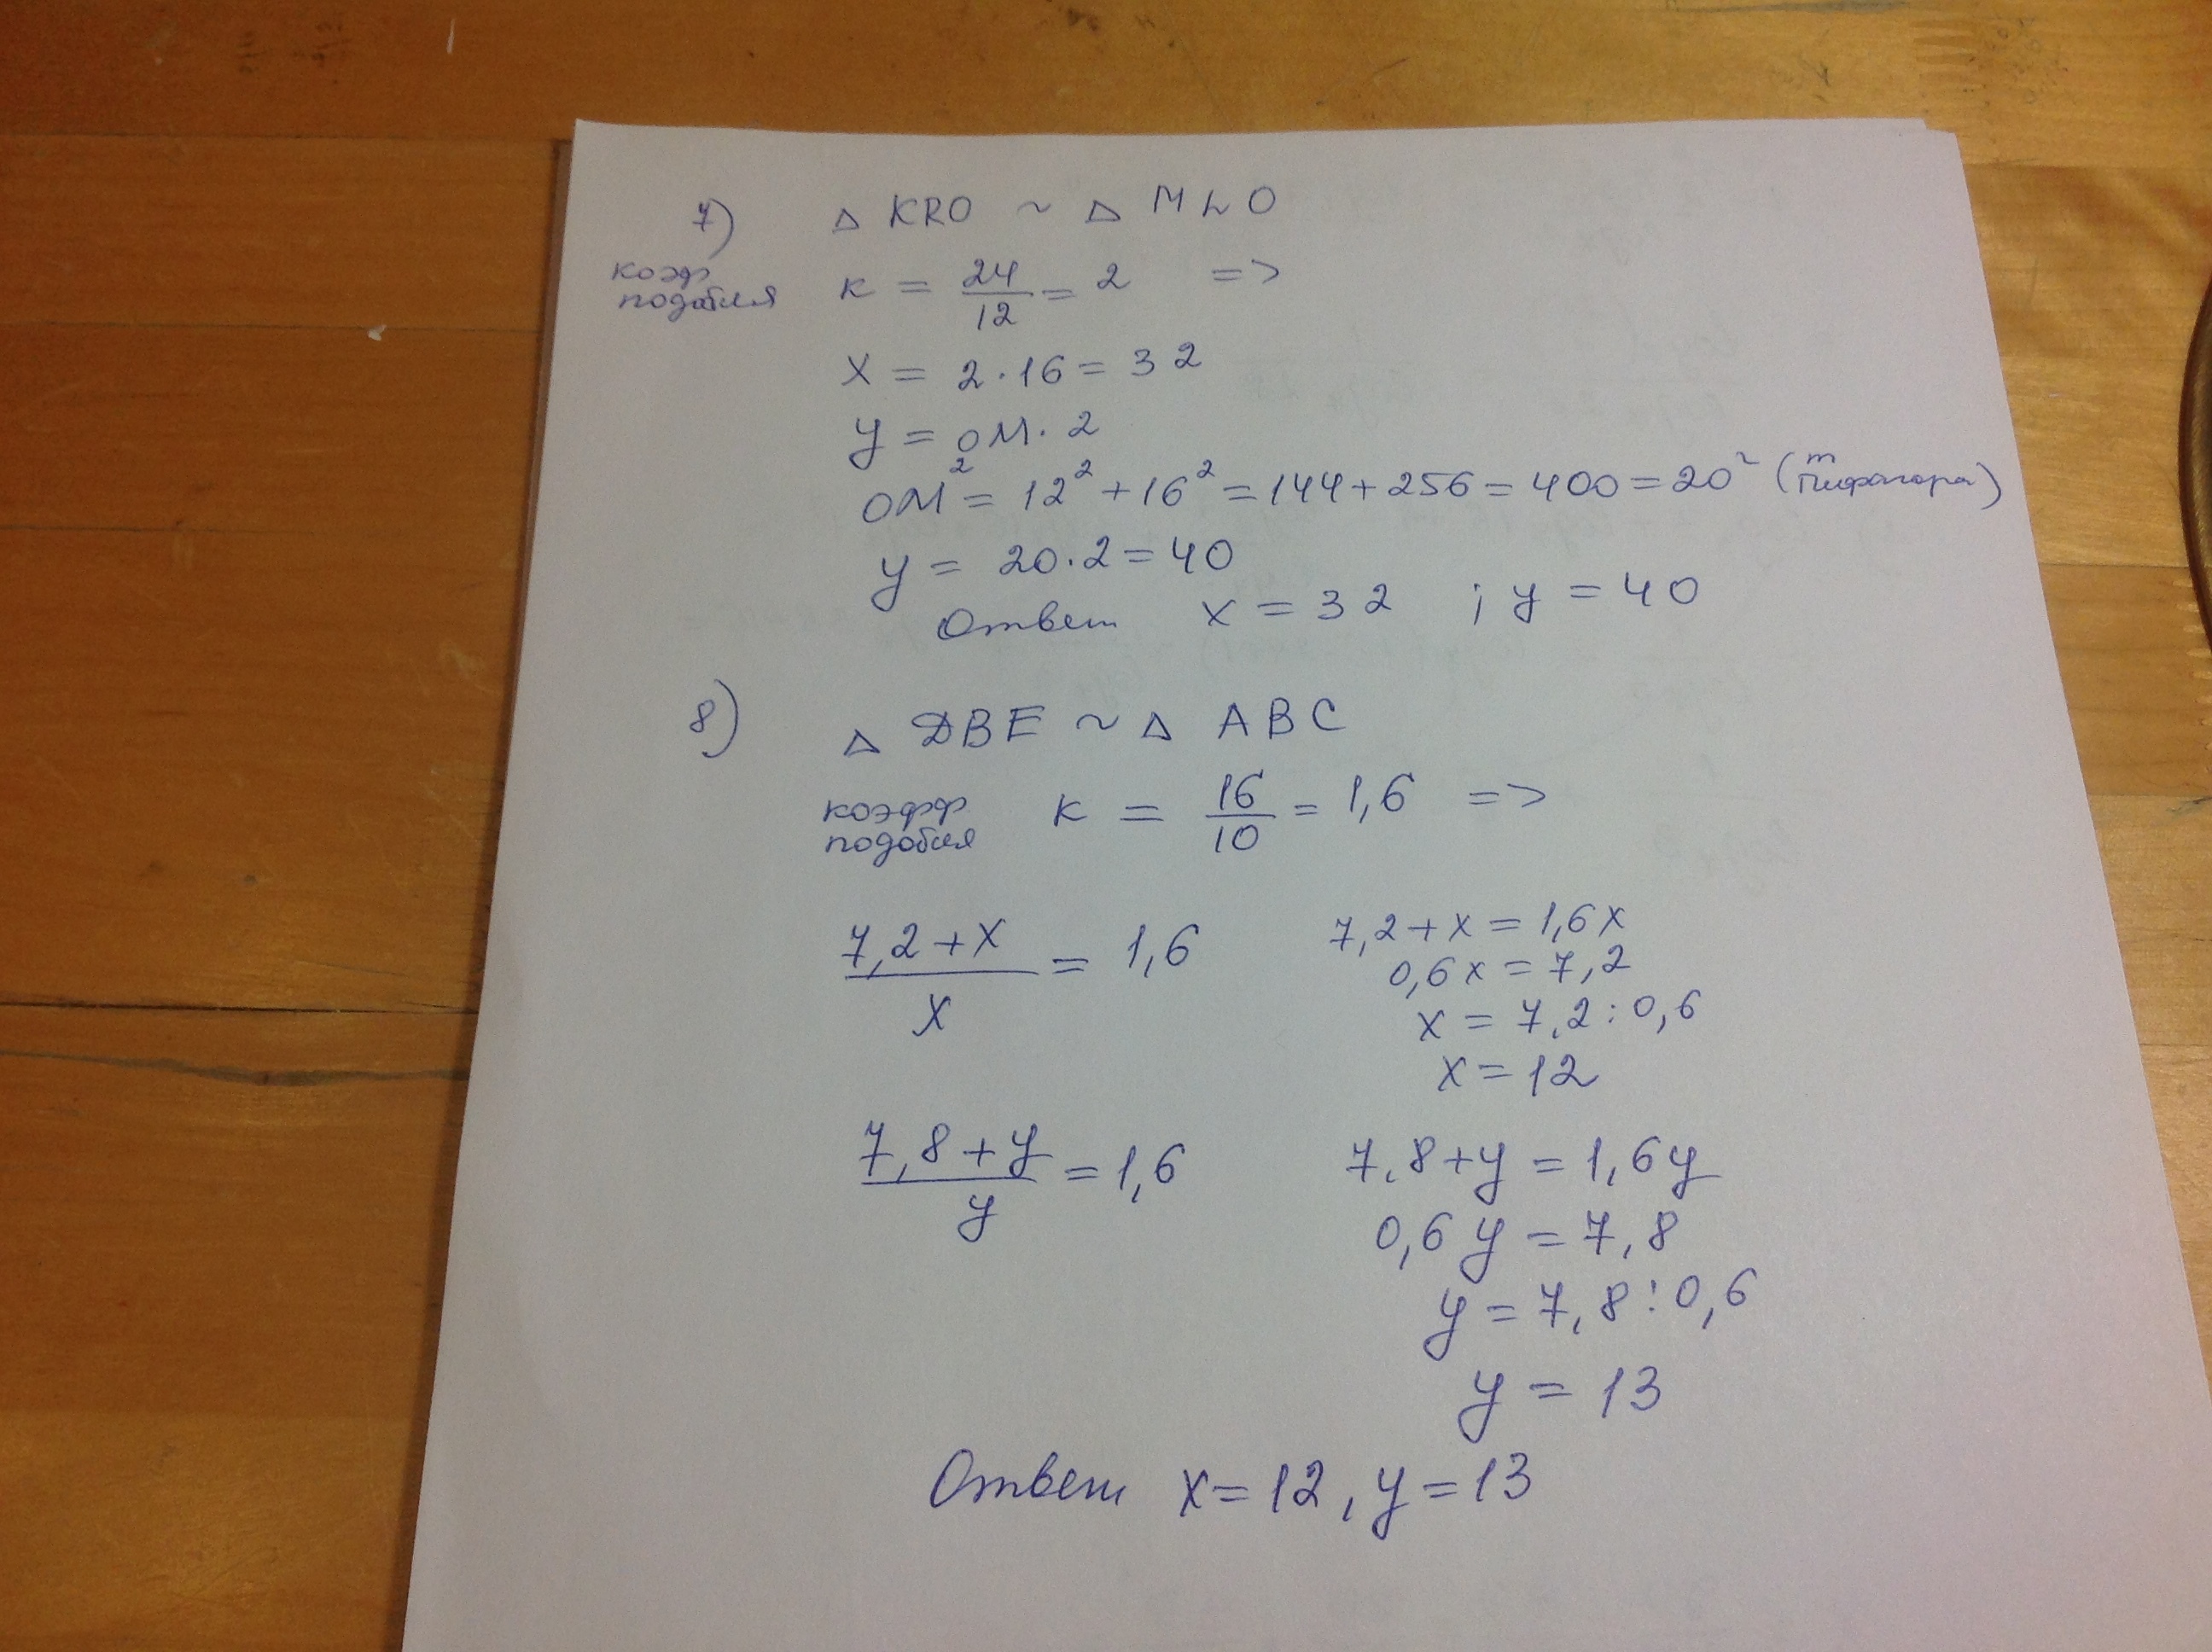 7) △ KRO ~ △ MLO
коэф подобия к = 24/12 = 2 =>
x = 2·16 = 32
y = OM·2
OM² = 12² + 16² = 144 + 256 = 400 = 20² (т Пифагора)
y = 20·2 = 40
Ответ x = 32 ; y = 40
8) △ DBE ~ △ ABC
коэфф подобия к = 16/10 = 1,6 =>
(7,2+x)/x = 1,6
7,2+x = 1,6x
0,6x = 7,2
x = 7,2 : 0,6
x = 12
(7,8+y)/y = 1,6
7,8+y = 1,6y
0,6y = 7,8
y = 7,8 : 0,6
y = 13
Ответ x = 12, y = 13